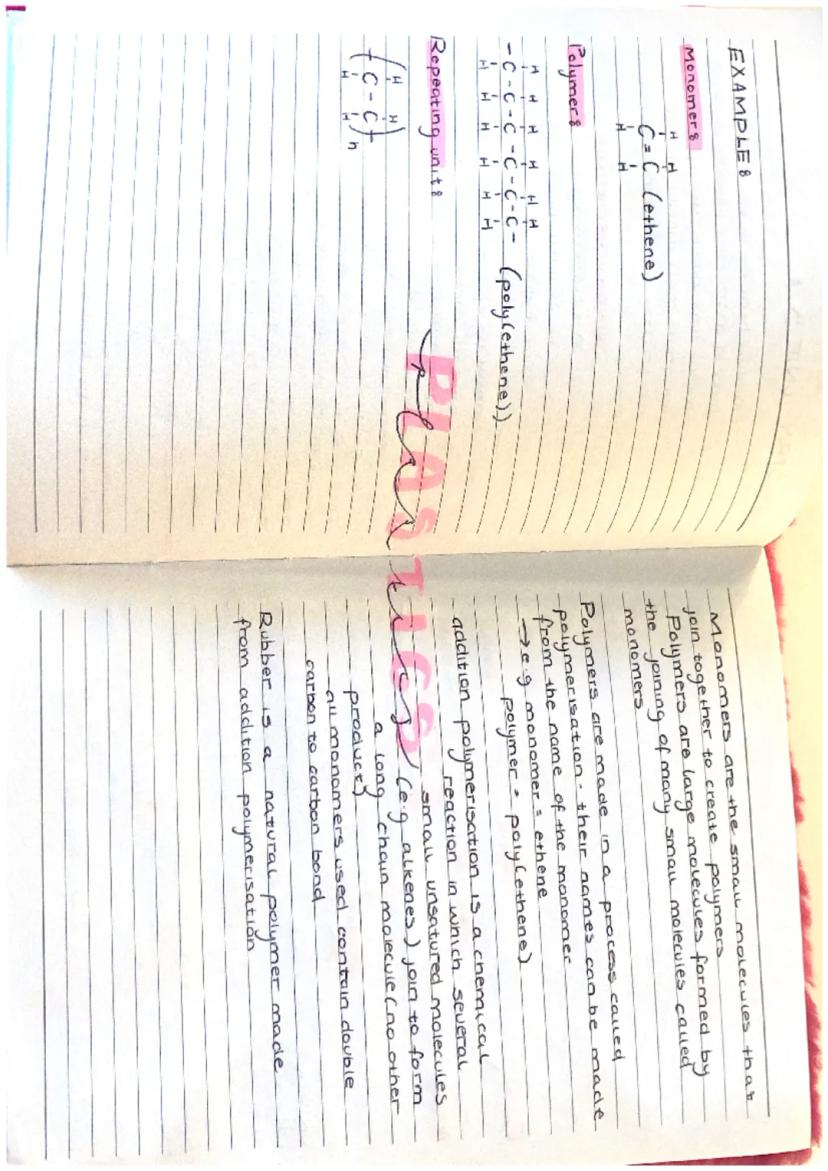 EXAMPLE:
Monomer:
H H
C=C (ethene)
H H
Polymer:
H H H H H H
-C-C-C-C-C-C- (poly(ethene))
H H H H H H
Repeating unit:
H H
(C-C)n
H H
PLASTICS
Plastics
Monomers are the small molecules that
join together to create polymers
Polymers are large molecules formed by
the joining of many small molecules called
monomers
Polymers are made in a process called
polymerisation. their names can be made
from the name of the monomer
→ e.g monomer = ethene
polymer = poly(ethene)
addition polymerisation is a chemical
reaction in which several
small unsatured molecules
(e.g alkenes) join to form
a long chain molecule (no other
product)
all monomers used contain double
carbon to carbon bond
Rubber is a natural polymer made
from addition polymerisation